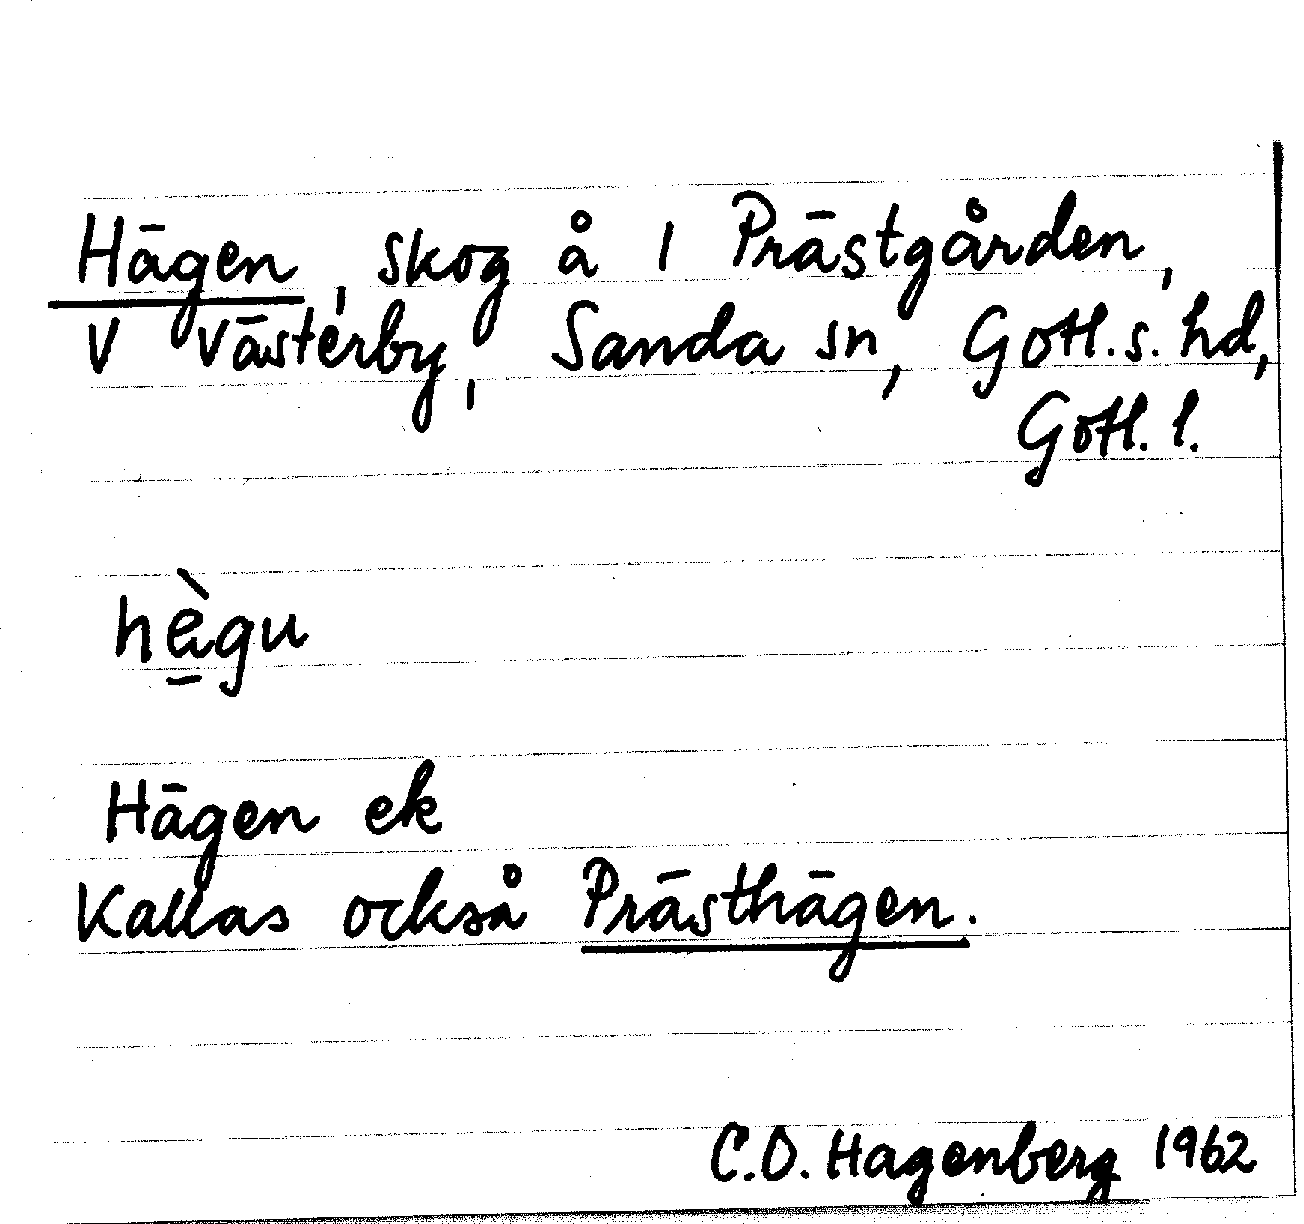 Hägen, skog å 1 Prästgården,
V Västerby, Sanda sn, Gotl. s. hd,
Gotl. l.
hä̀gu
Hägen ek
Kallas också Prästhägen.
C.O. Hagenberg 1962